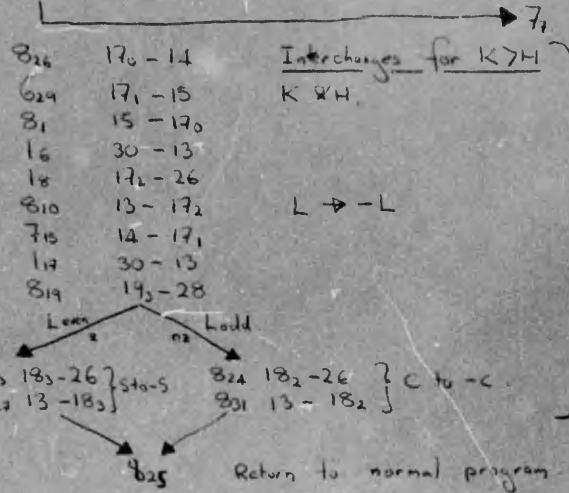 7₇
8₂₆ 17₀ - 14 Interchanges for K>H
6₂₉ 17₁ - 15 K & H.
8₁ 15 - 17₀
1₆ 30 - 13
1₈ 17₂ - 26
8₁₀ 13 - 17₂ L → -L
7₁₅ 14 - 17₁
1₁₇ 30 - 13
8₁₉ 19₃ - 28
L even z nz L odd
18₃ - 26 } S to -S 8₂₄ 18₂ - 26 } C to -C.
13 - 18₃ 8₃₁ 13 - 18₂
8₂₅ Return to normal program